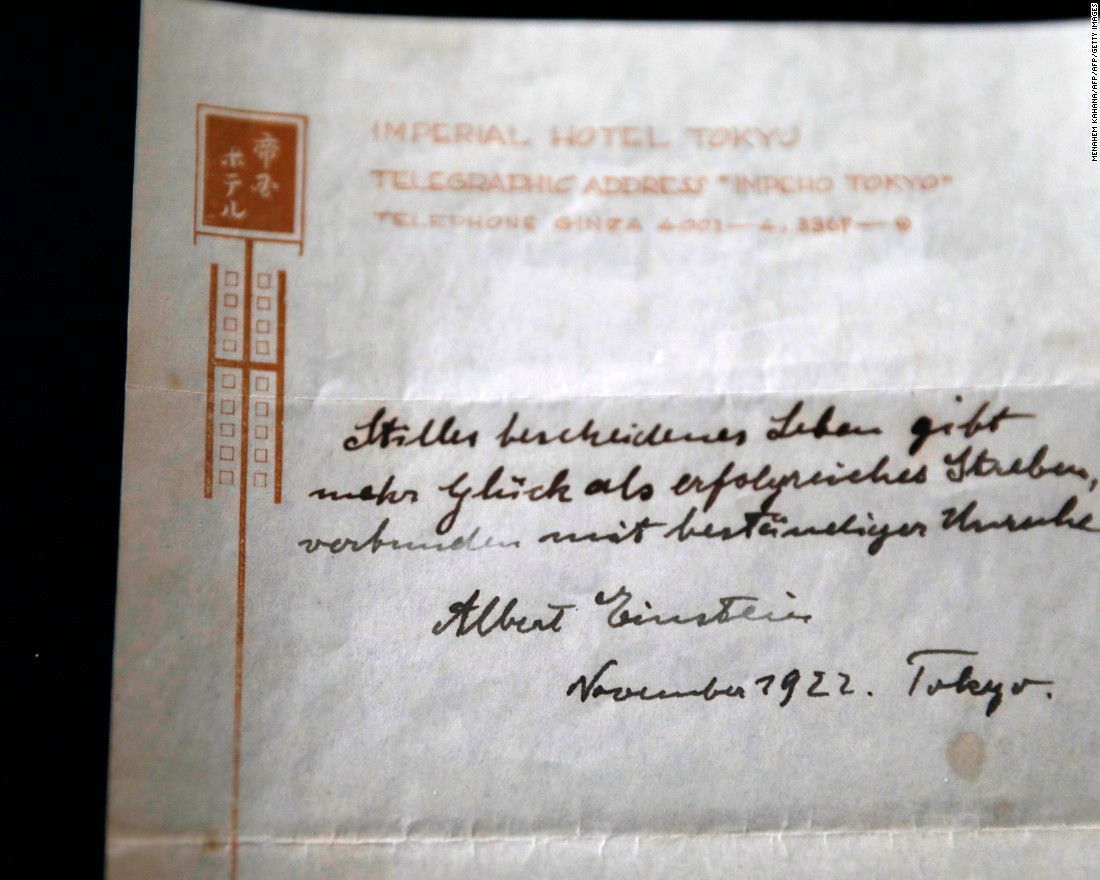 帝国
ホテル
IMPERIAL HOTEL TOKYO
TELEGRAPHIC ADDRESS "IMPEHO TOKYO"
TELEPHONE GINZA 4001—4. 336—9
Stilles bescheidenes Leben gibt
mehr Glück als erfolgreiches Streben,
verbunden mit beständiger Unruhe
Albert Einstein
November 1922. Tokyo.
MENAHEM KAHANA/AFP/AFP/GETTY IMAGES